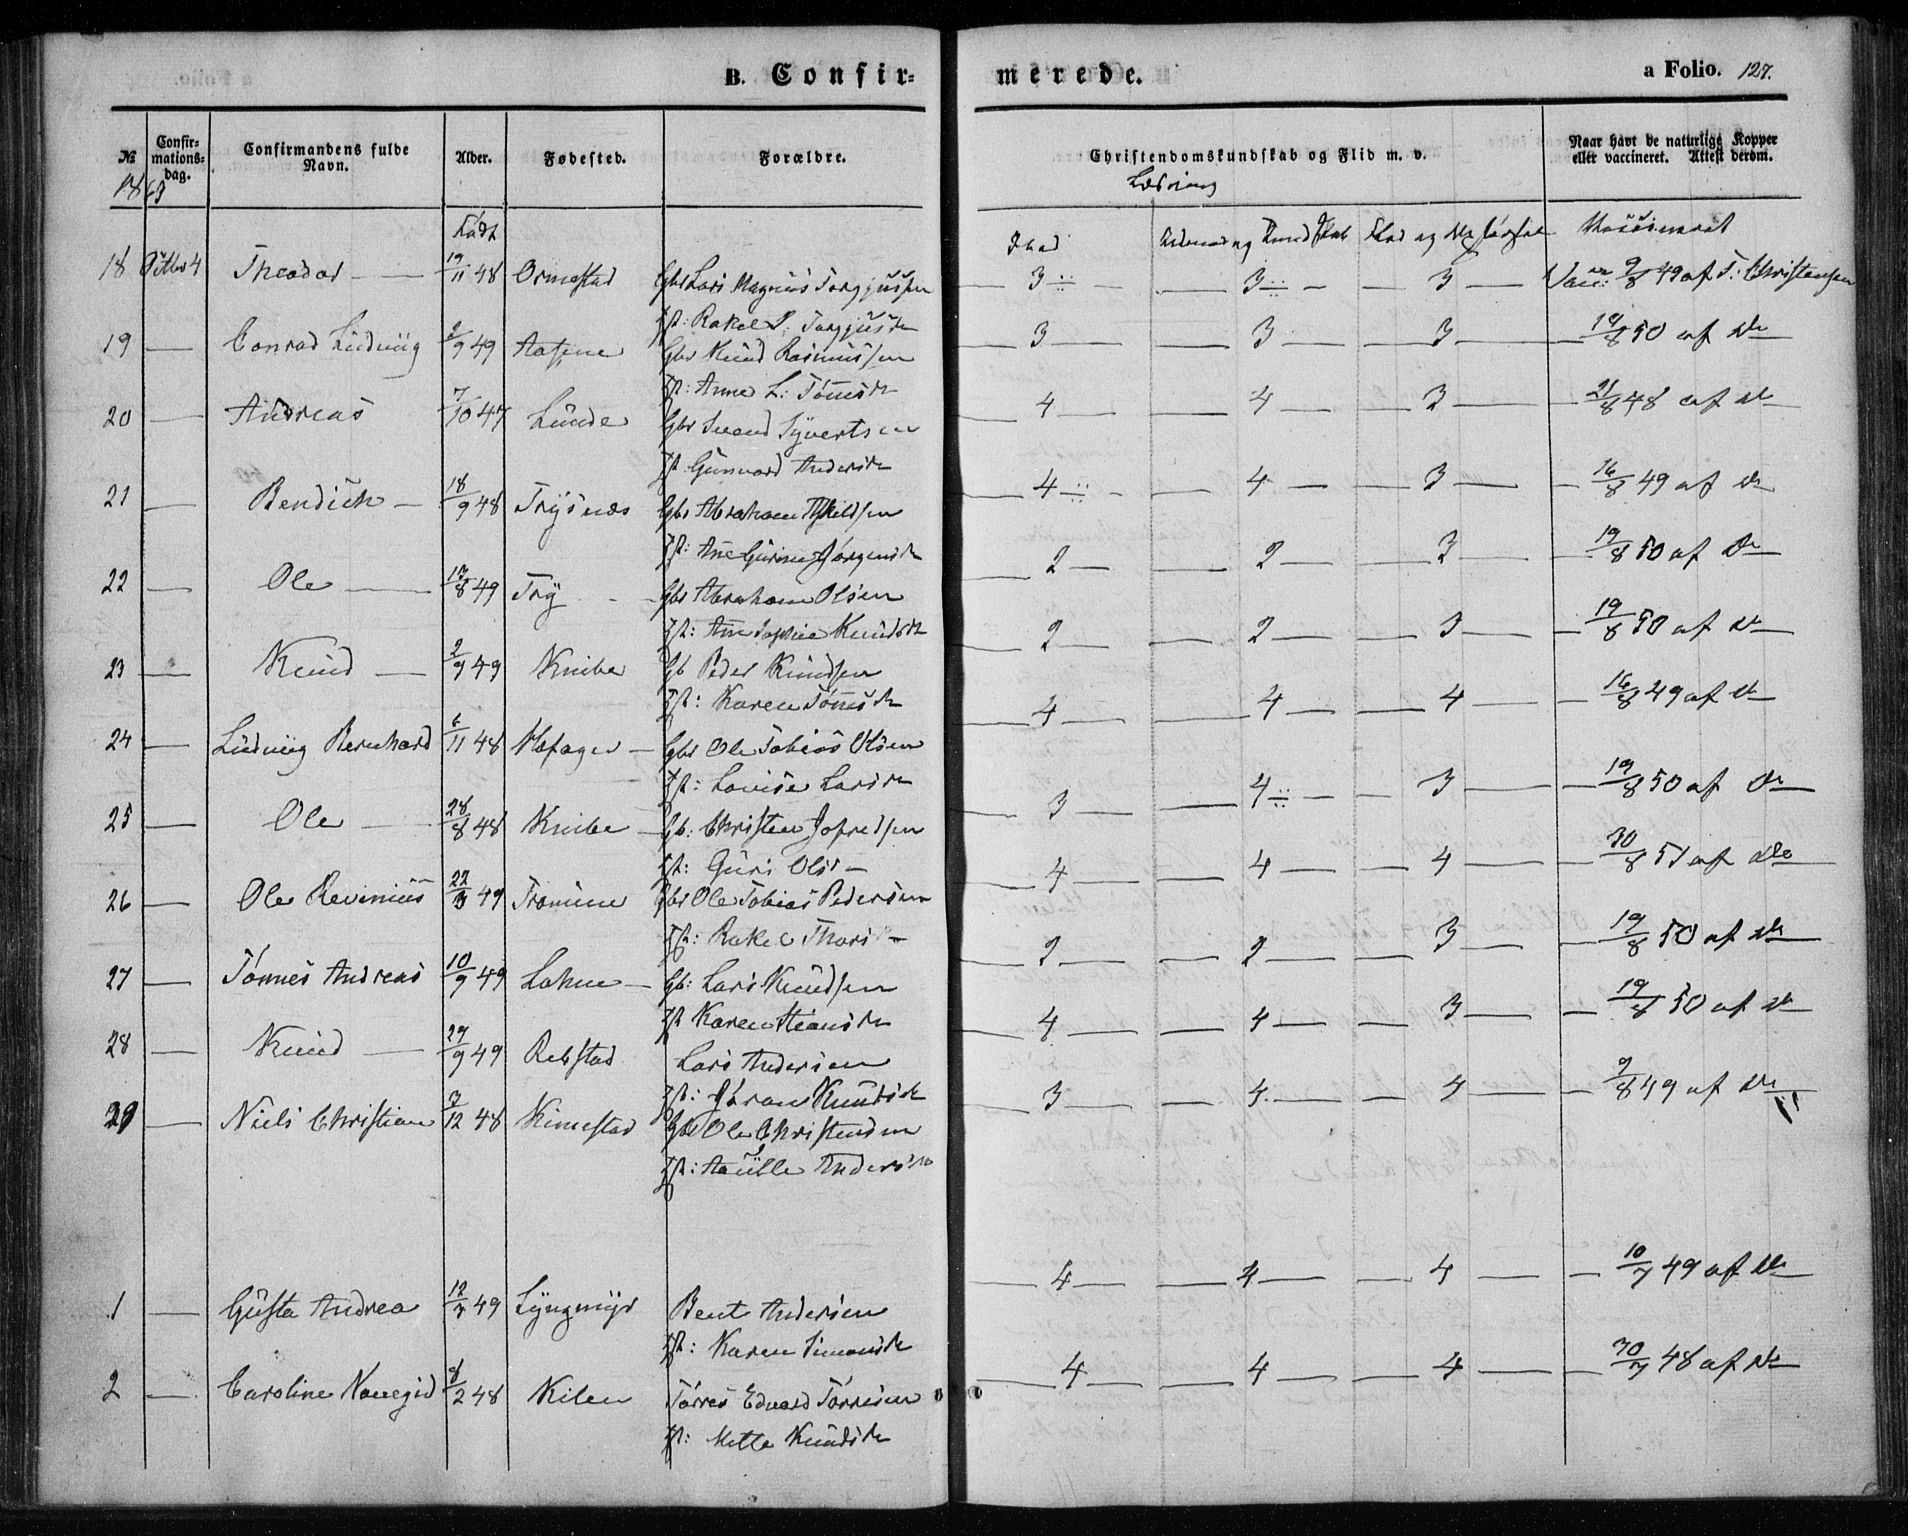 B. Confir-
merede.
a Folio. 127.
№ Confir-mations-dag. Confirmandens fulde Navn. Alder. Fødested. Forældre. Christendomskundskab og Flid m. v. Naar havt de naturlige Kopper eller vaccineret. Attest derom.
1863
Født
18 Octbr 4 Theodor 19/11 48 Ormestad Gbr Lars Magnus Torgjussen 3 3 3 Vacc: 9/8 49 af T. Christensen
Hst: Rakel P. Torgjusdr
19 Conrad Ludvig 2/9 49 Aasene Gbr Knud Rasmussen 3 3 3 19/8 50 af Do
Hst: Anne L: Tønnesdr
20 Andreas 7/10 47 Lunde Gbr Svend Syvertsen 4 4 3 21/8 48 af Do
Hst Gunvord Andersdr
21 Bendich 18/9 48 Trysnæs Gbr Abraham 4 4 3 16/8 49 af Do
Hst: Ane Gurine Jørgensdr
22 Ole 17/8 49 Try Gbr Abraham Olsen 2 2 3 19/8 50 af Do
Hst: Ane Sophie Knudsdr
23 Knud 2/9 49 Knibe Gb Peder Knudsen 2 2 3 19/8 50 af Do
Hst: Karen Tønnesdr
24 Ludvig Bernhard 6/11 48 Gbr Ole Tobias Olsen 4 4 4 16/8 49 af Do
Hst: Lovise Larsdr
25 Ole 28/8 48 Knibe Gb: Christen Jofredsen 3 4 3 19/8 50 af Do
Hst: Guri Olsd
26 Ole Revinius 22/3 49 Tromme Gbr Ole Tobias Pedersen 4 4 4 30/8 51 af Do
Hst: Rakel
27 Tønnes Andreas 10/9 49 Lohne Gb: Lars Knudsen 2 2 3 19/8 50 af Do
Hst Karen
28 Knud 29/9 49 Rebstad Lars Andersen 4 4 3 19/8 50 af Do
Hst: Gøran Knudsdr
29 Niels Christian 3/12 48 Kimestad Gbr Ole Christensen 3 4 4 9/8 49 af Do
Hst: Andersdr
1 Gusta Andrea 12/3 49 Lyngmyr Bent Andersen 4 4 4 10/7 49 af Do
Hst: Karen Simonsdr
2 Caroline 8/2 48 Kilen Tørres Edvard Tørresen 4 4 4 30/7 48 af Do
Hst: Mette Knudsdr